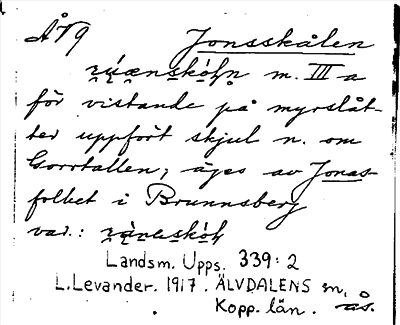 Åv9 Jonsskålen
m. III a
för vistande på myrslåt-
ter uppfört skjul n. om
Gorrtallen, äges av Jonas-
folket i Brunnsberg
var.:
Landsm. Upps. 339:2
L. Levander. 1917. ÄLVDALENS sn,
Kopp. län. ås.